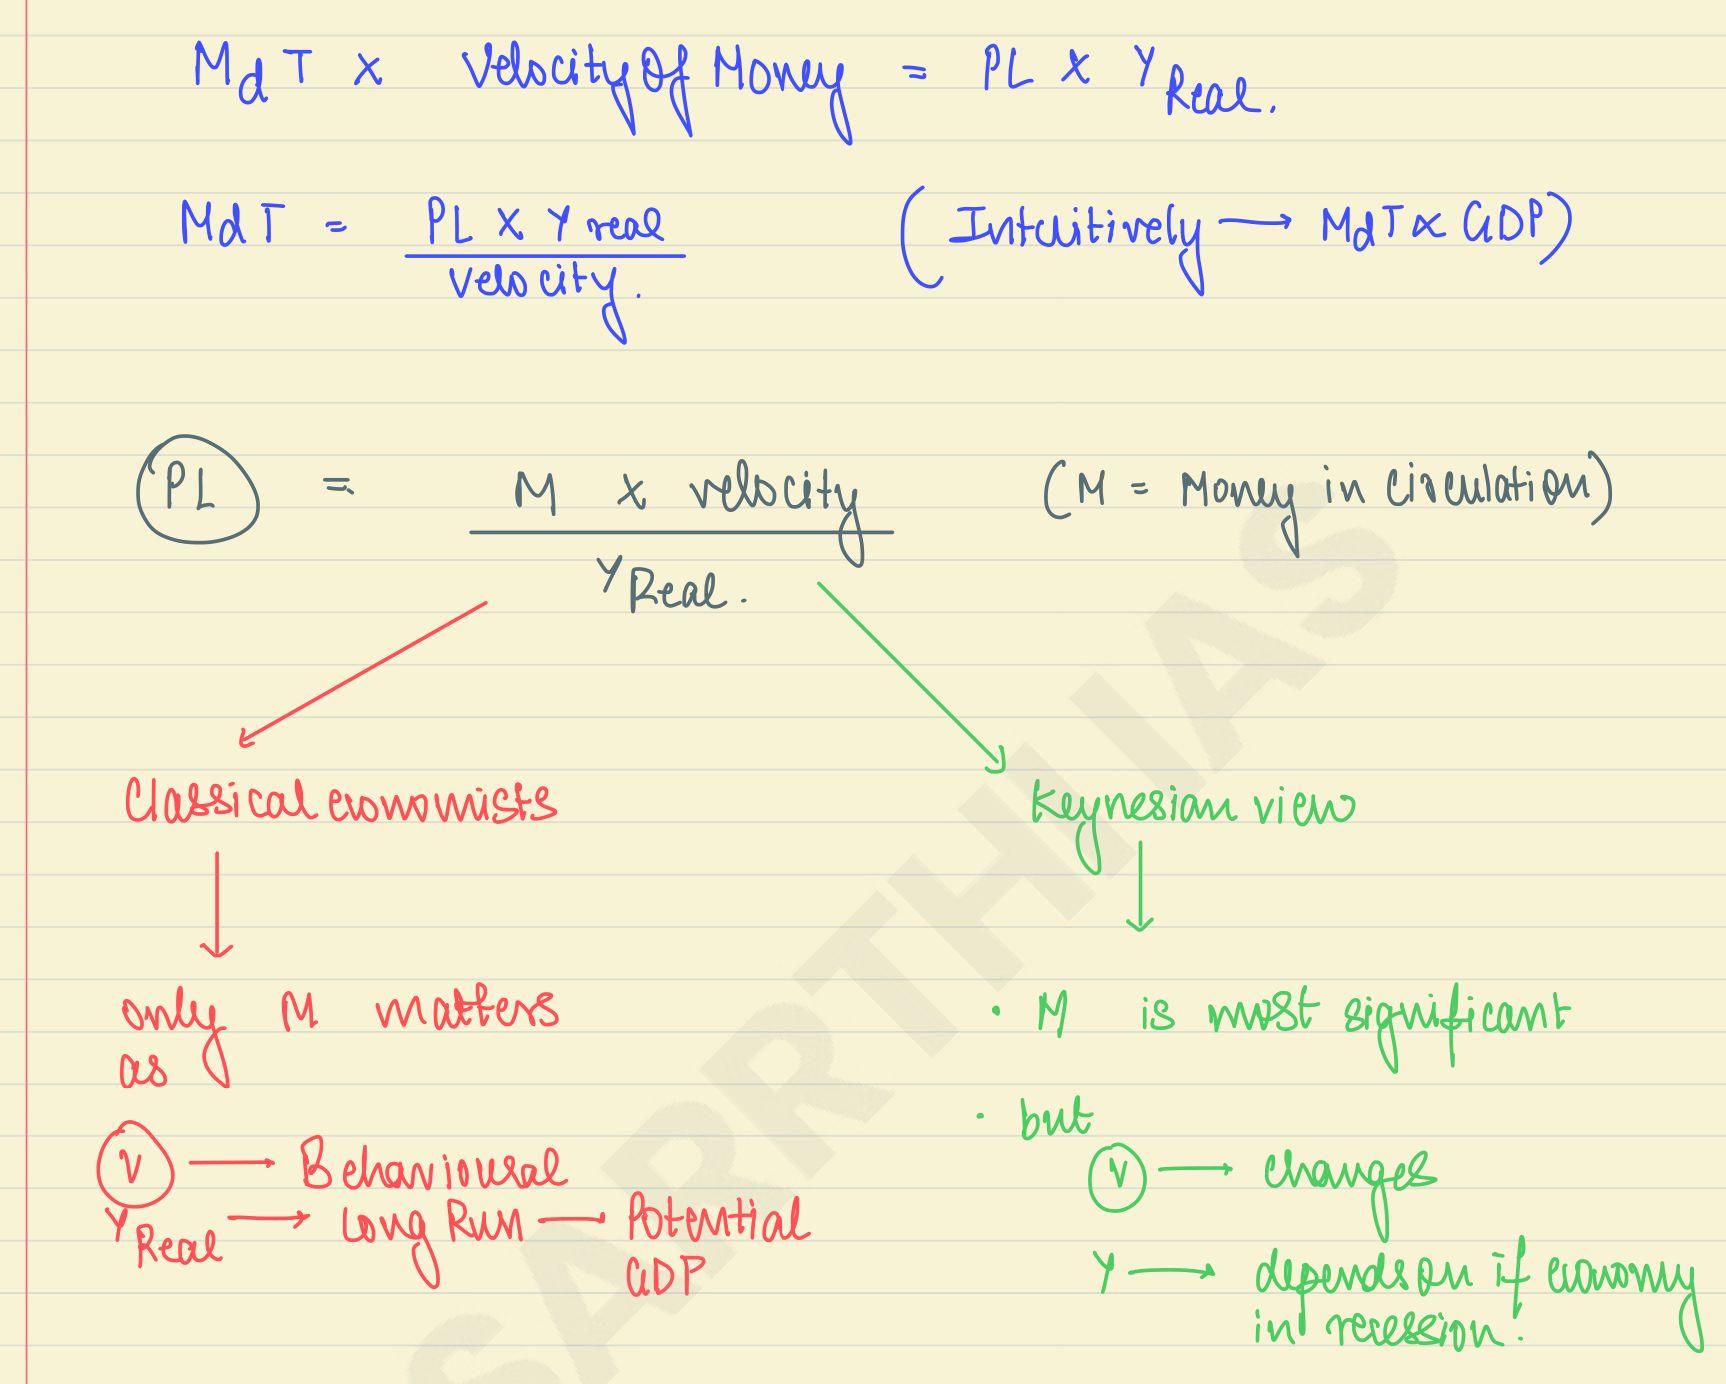 MdT x Velocity of Money = PL x Y Real.
MdT = PL x Y real / velocity. (Intuitively → MdT ∝ GDP)
PL = M x velocity / Y Real. (M = Money in circulation)
Classical economists
Keynesian view
only M matters
as
V → Behavioural
Y Real → Long Run — Potential
GDP
· M is most significant
· but
V → changes
Y → depends on if economy
in recession.
SARRTHI IAS